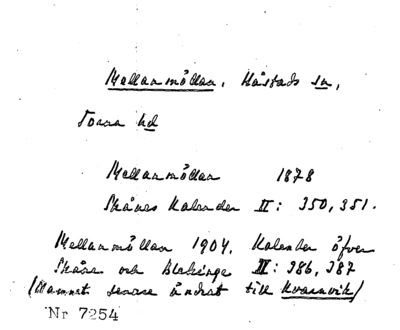 Mellanmöllan, Håstads sn,
Torna hd
Mellanmöllan 1878
Skånes Kalender II: 350, 351.
Mellanmöllan 1904. Kalender öfver
Skåne och Blekinge II: 386, 387
(Namnet senare ändrat till Kvarnvik)
Nr 7254